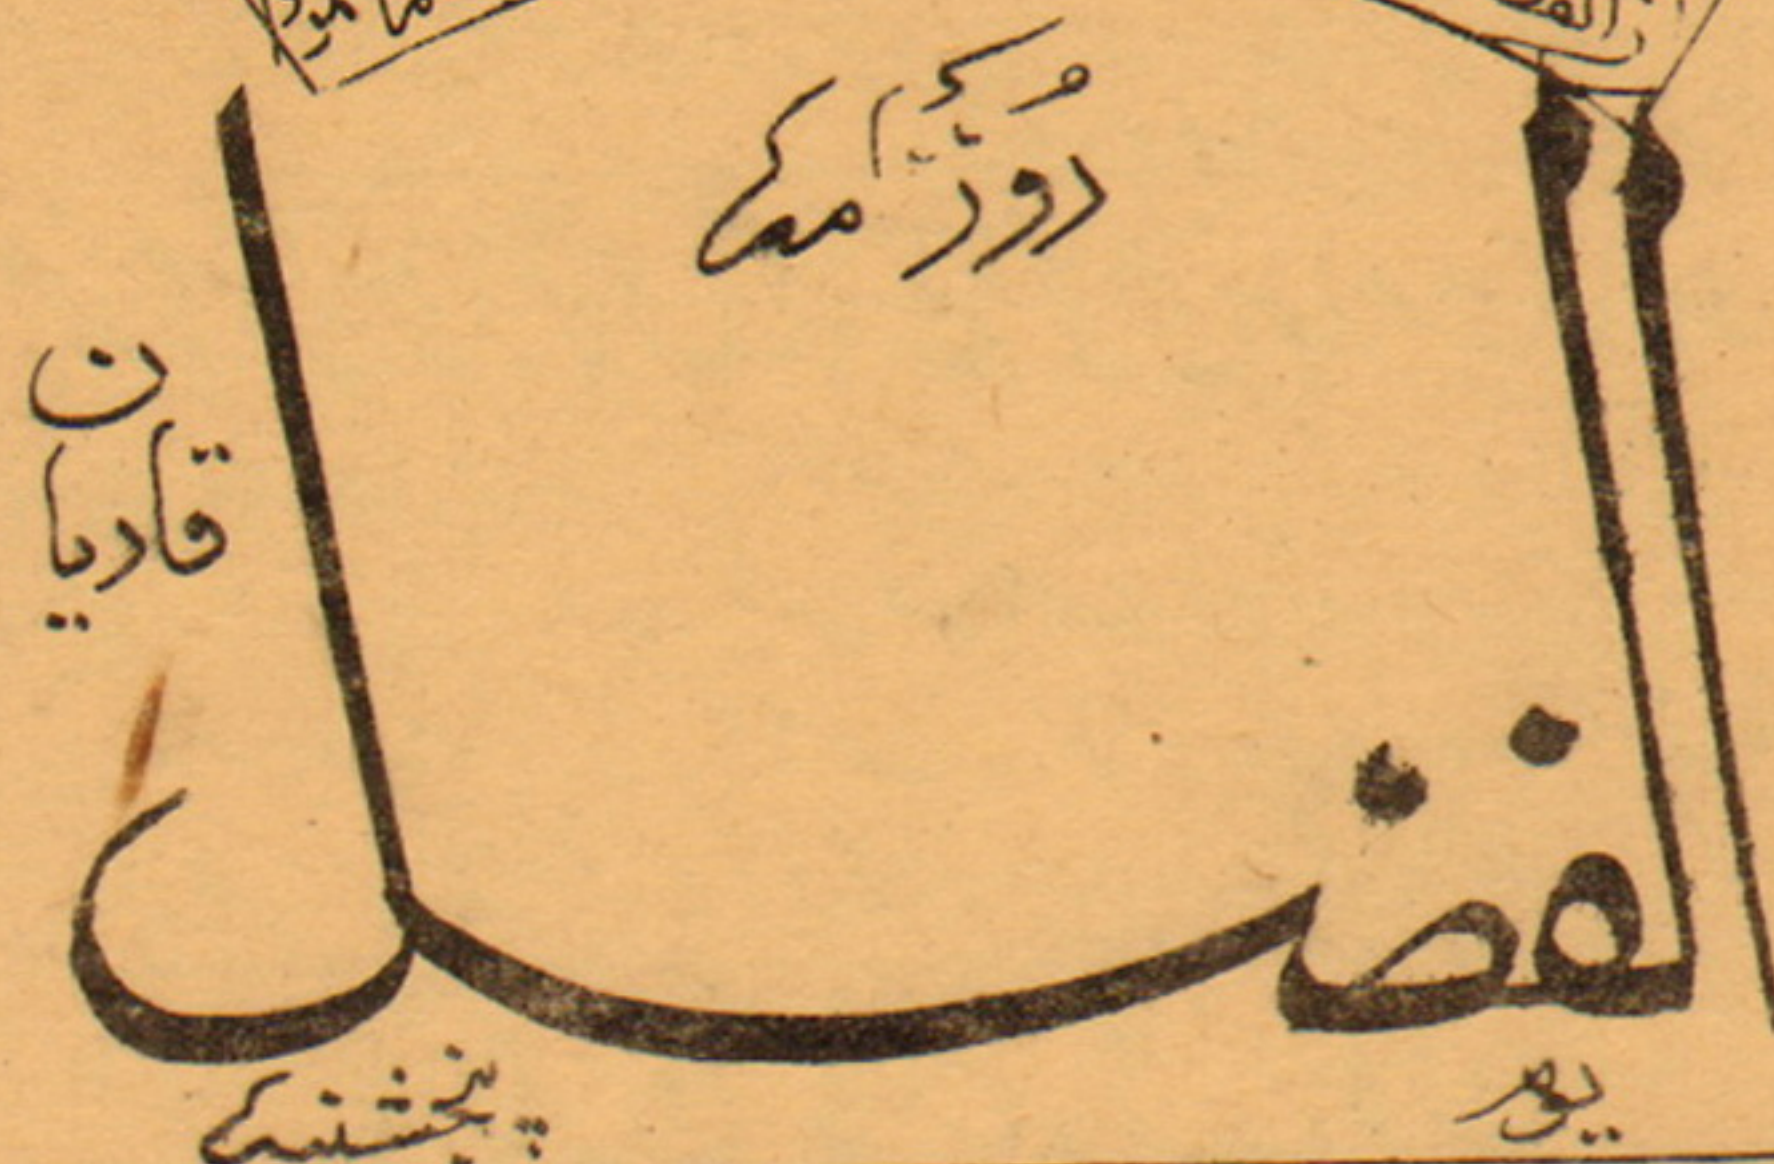 روزنامہ
الفضل
قادیان
یوم
پنجشنبہ